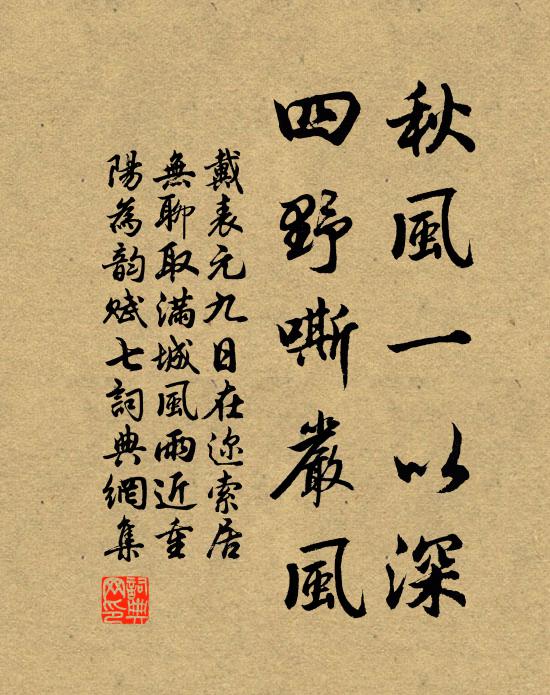 秋風一以深
四野嘶嚴風
戴表元九日在迩索居
無聊取滿城風雨近重
陽為韵賦七詞典網集
詞典网印